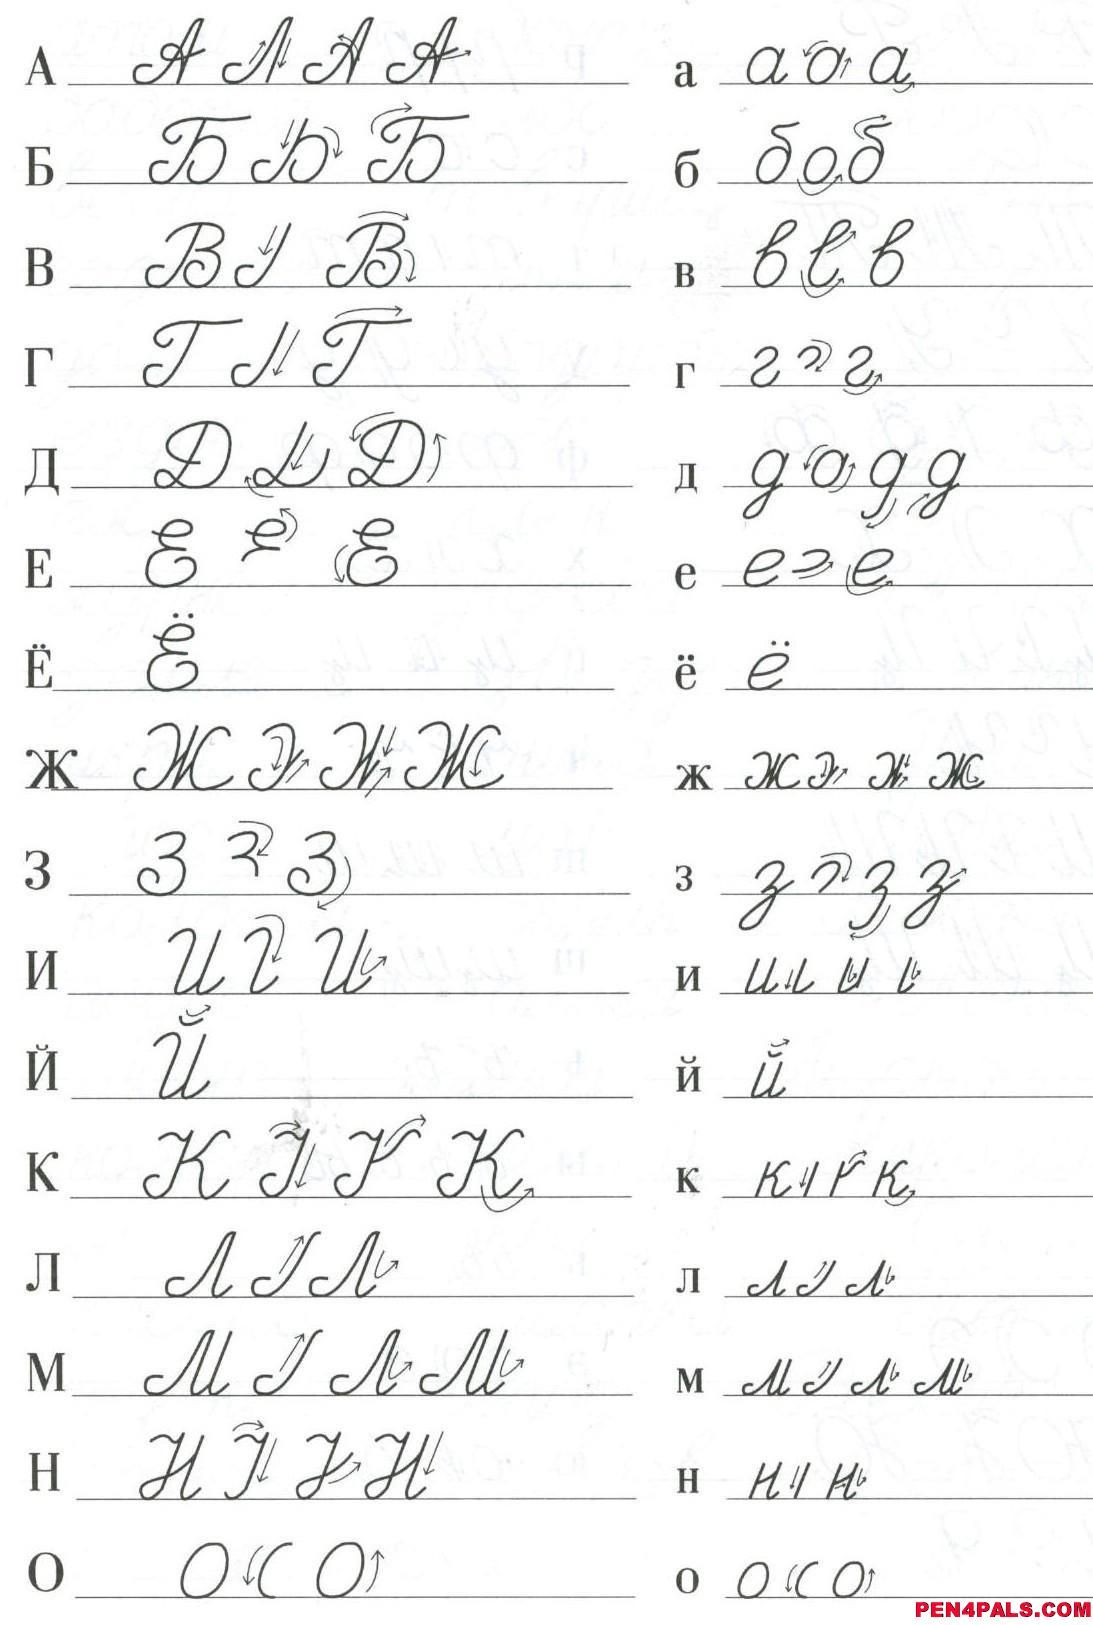 А А А А А а а а а
Б Б Б Б б б о б
В В В В в в в в
Г Г Г г г г
Д Д Д д д а д д
Е Е Е Е е е е
Ё Ё ё ё
Ж Ж Ж Ж ж ж ж ж
З З З З з з з з
И И И и и и и
Й Й й й
К К К к к к
Л Л Л л л л
М М Л М м м л м
Н Н Н н н н
О О С О о о с о
PEN4PALS.COM